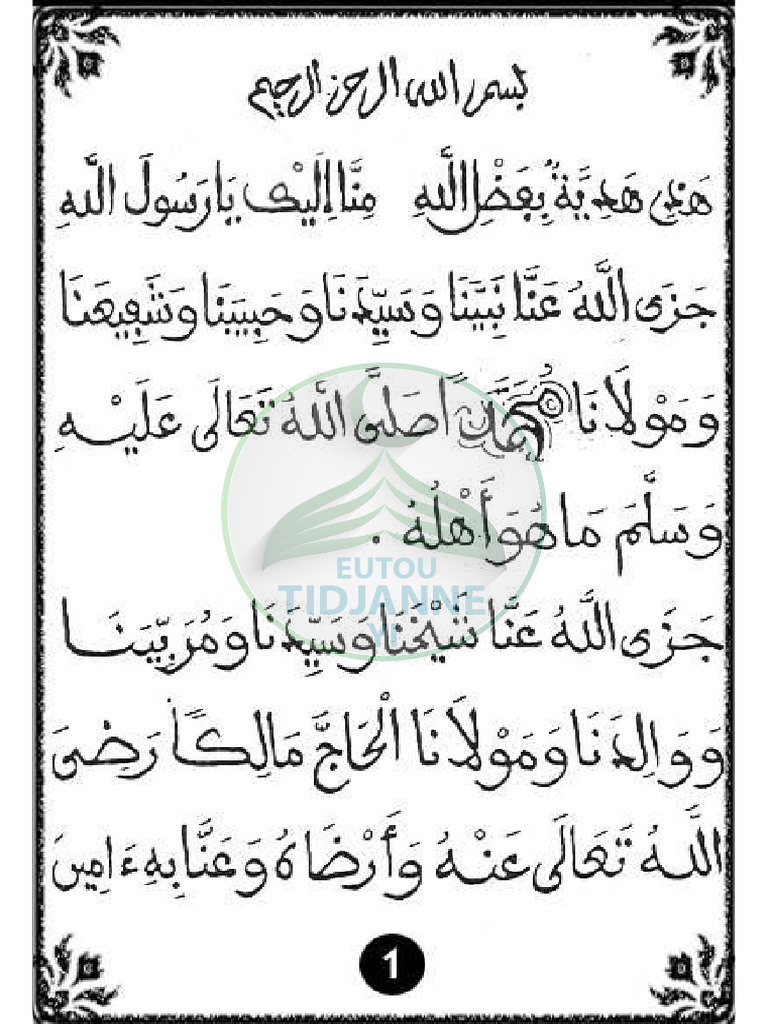 بسم الله الرحمن الرحيم
هَذِي هَدِيَّةٌ بِفَضْلِ اللَّهِ مِنَّا إِلَيْكَ يَا رَسُولَ اللَّهِ
جَزَى اللَّهُ عَنَّا نَبِيَّنَا وَسَيِّدَنَا وَحَبِيبَنَا وَشَفِيعَنَا
وَمَوْلَانَا مُحَمَّدًا صَلَّى اللَّهُ تَعَالَى عَلَيْهِ
وَسَلَّمَ مَا هُوَ أَهْلُهُ .
EUTOU
TIDJANNE
YI
جَزَى اللَّهُ عَنَّا شَيْخَنَا وَسَيِّدَنَا وَمُرَبِّيَنَا
وَوَالِدَنَا وَمَوْلَانَا الْحَاجَّ مَالِكًا رَضِىَ
اللَّهُ تَعَالَى عَنْهُ وَأَرْضَاهُ وَعَنَّا بِهِ ءَامِينَ
1